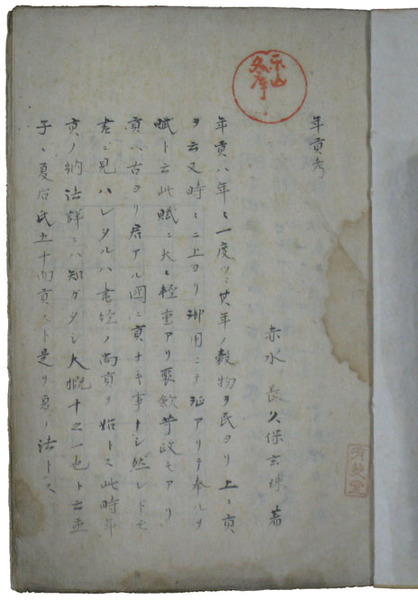 年貢考
赤水 長久保玄珠 著
年貢ハ年ニ一度ツヽ其年ノ穀物ヲ民ヨリ上ニ貢
ヲ云又時ニ上ヨリ御用ニテ アリテ奉ルヲ
賦ト云此賦ニ大ニ軽重アリ聚斂苛政モアリ
貢ハ古ヨリ君アル国ニ貢ナキ事ナシ然レドモ
書ニ見ハレタルハ書経ノ禹貢ヲ始トス此時年
貢ノ納法詳ニハ知ガタシ大概十之一也ト云孟
子ニ夏后氏五十而貢スト是ヲ夏ノ法トス